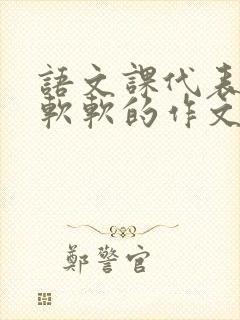 語文課代表
軟軟的作文
鄭警官